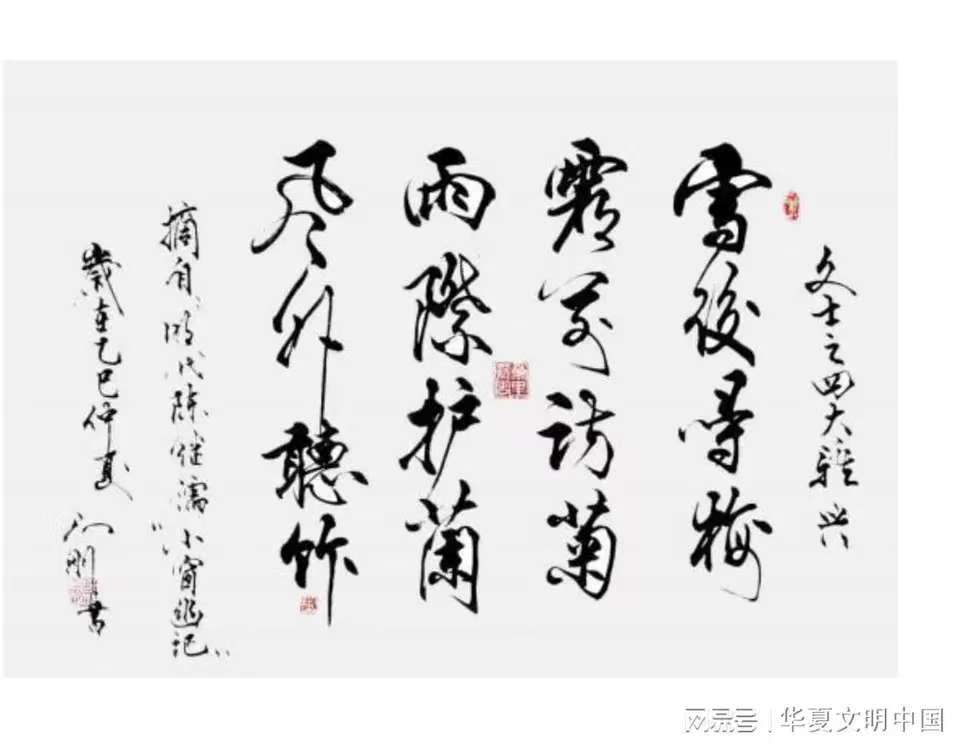 文士之四大雅兴
雪後尋梅
霜前访菊
雨際护蘭
风外聽竹
摘自明代陈继儒
"小窗幽记"
歲在乙巳仲夏
刚书
网易号 | 华夏文明中国